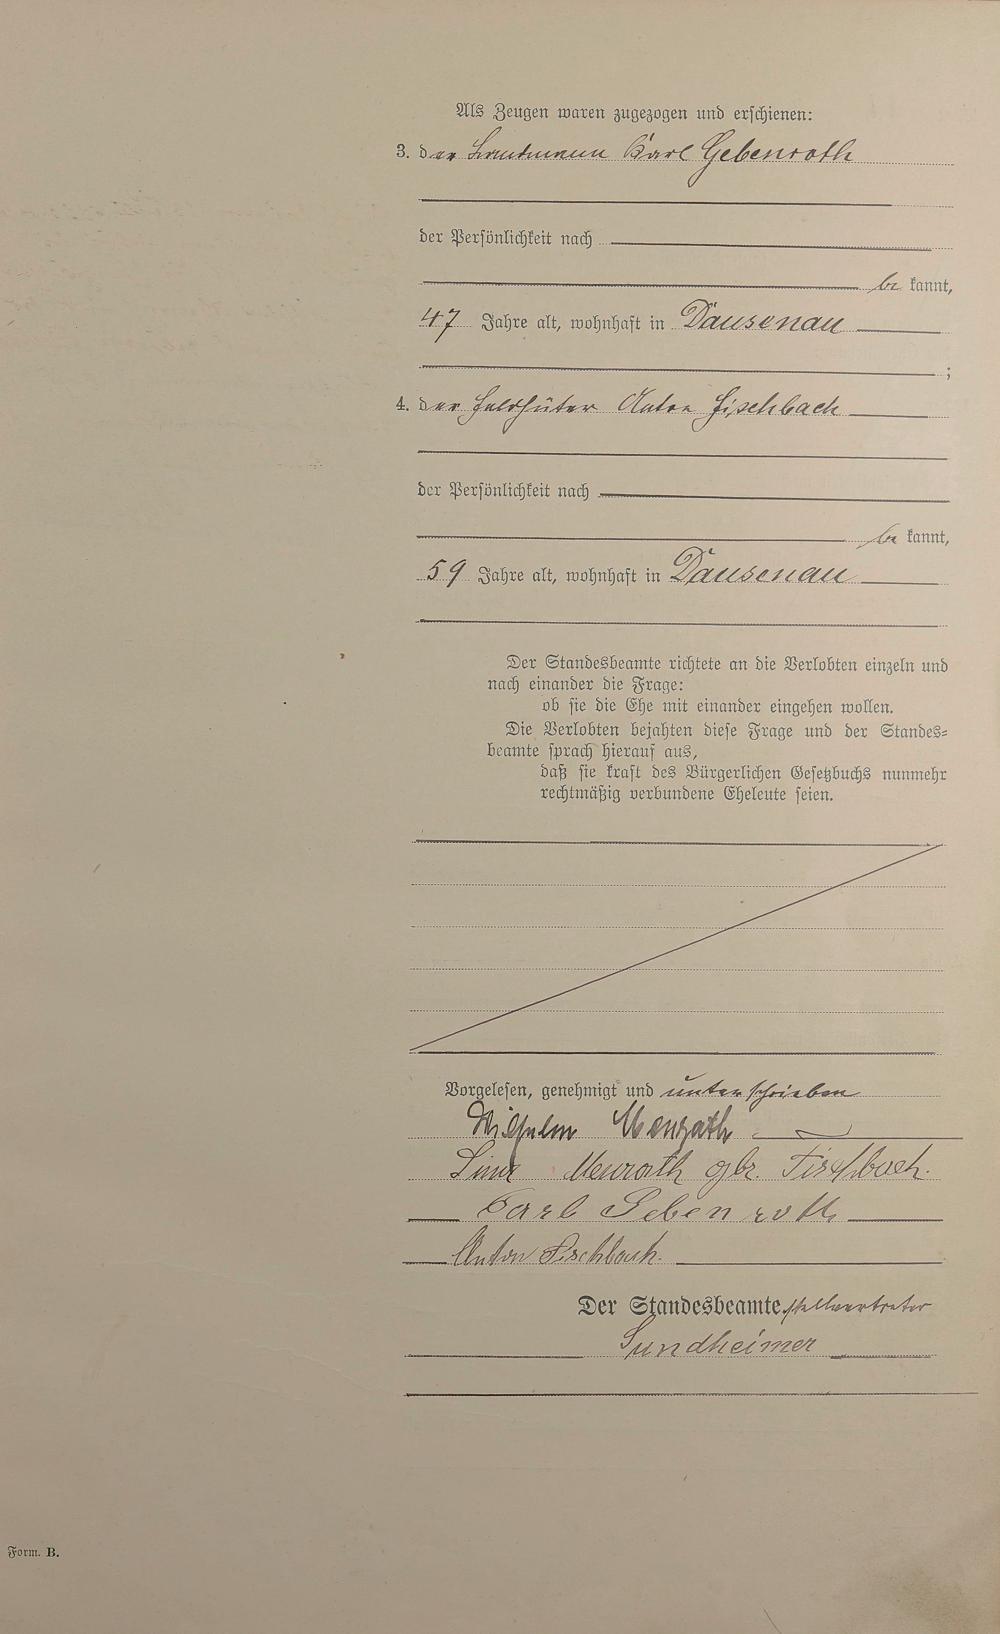 Als Zeugen waren zugezogen und erschienen:
3. der Landmann Karl Gebenroth
der Persönlichkeit nach
be kannt,
47 Jahre alt, wohnhaft in Dausenau
;
4. der Feldhüter Anton Fischbach
der Persönlichkeit nach
be kannt,
59 Jahre alt, wohnhaft in Dausenau
Der Standesbeamte richtete an die Verlobten einzeln und
nach einander die Frage:
ob sie die Ehe mit einander eingehen wollen.
Die Verlobten bejahten diese Frage und der Standes=
beamte sprach hierauf aus,
daß sie kraft des Bürgerlichen Gesetzbuchs nunmehr
rechtmäßig verbundene Eheleute seien.
Vorgelesen, genehmigt und unterschrieben
Wilhelm Menrath
Lina Menrath gbr. Fischbach.
Carl Gebenroth
Anton Fischbach.
Der Standesbeamte stellvertreter
Sundheimer
Form. B.